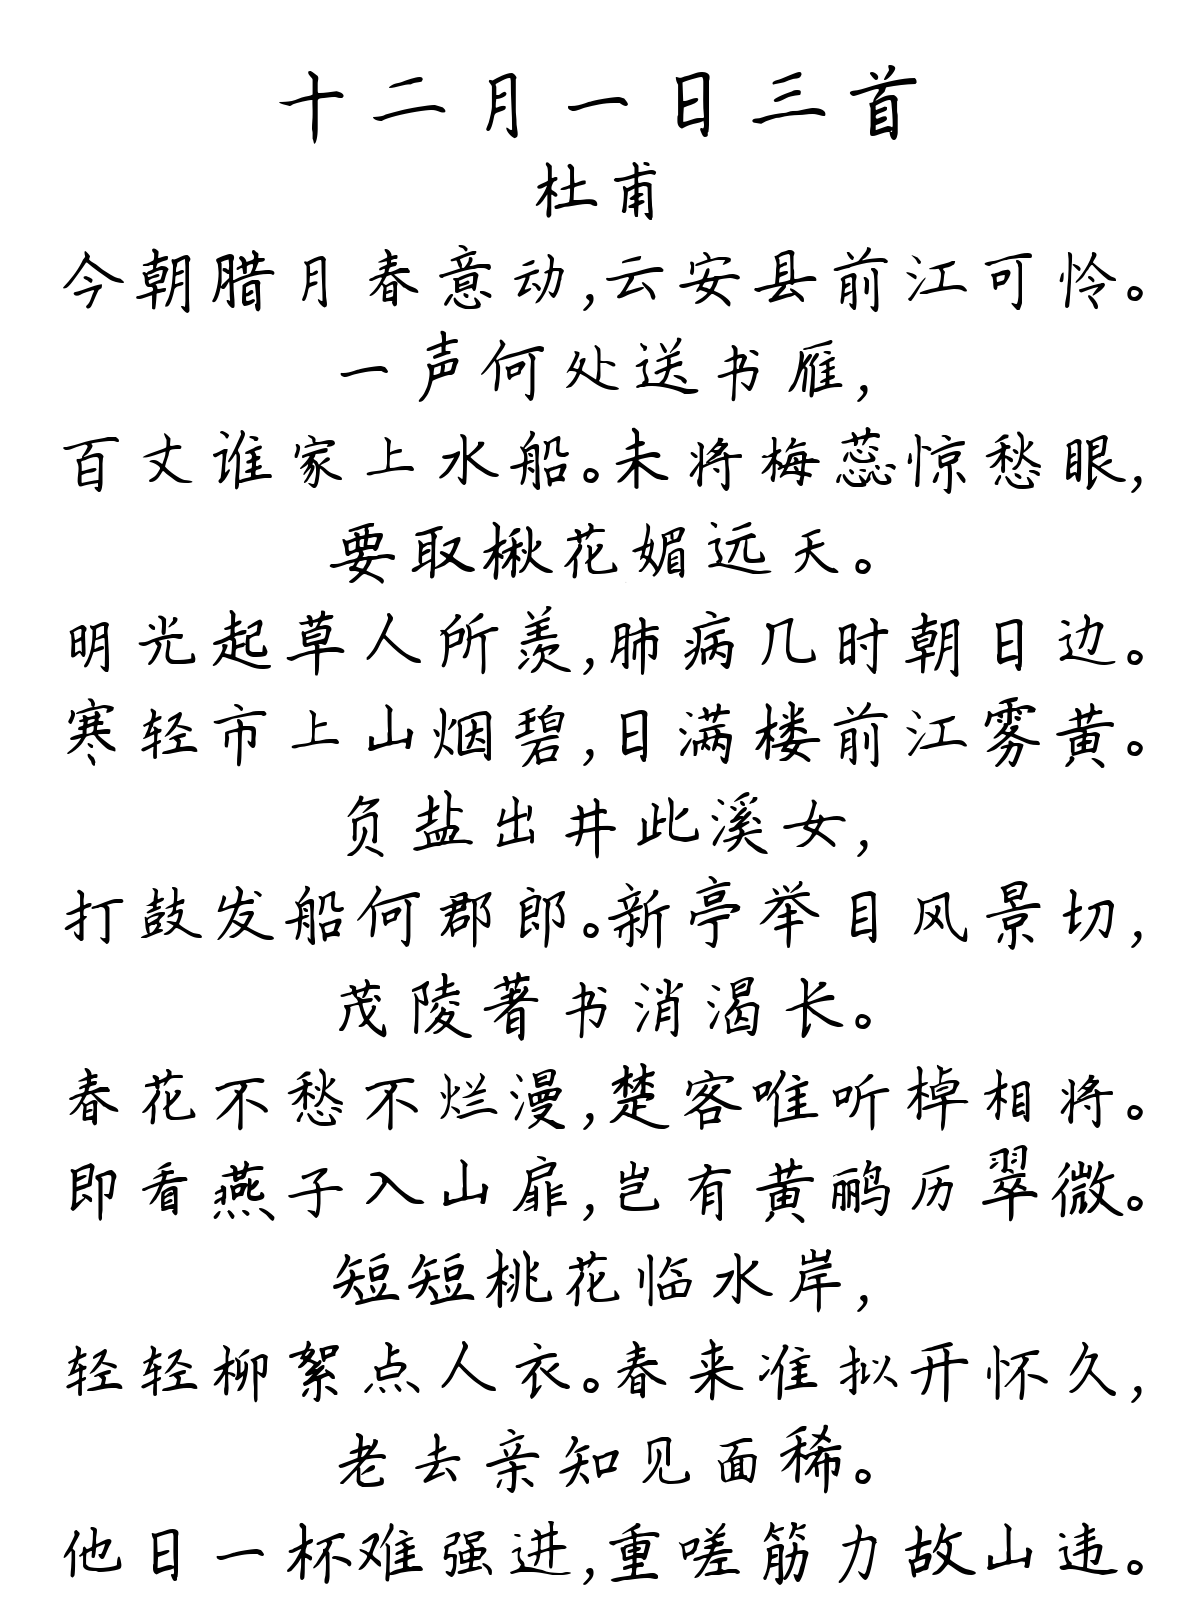 十二月一日三首
杜甫
今朝腊月春意动,云安县前江可怜。
一声何处送书雁,
百丈谁家上水船。未将梅蕊惊愁眼,
要取楸花媚远天。
明光起草人所羡,肺病几时朝日边。
寒轻市上山烟碧,日满楼前江雾黄。
负盐出井此溪女,
打鼓发船何郡郎。新亭举目风景切,
茂陵著书消渴长。
春花不愁不烂漫,楚客唯听棹相将。
即看燕子入山扉,岂有黄鹂历翠微。
短短桃花临水岸,
轻轻柳絮点人衣。春来准拟开怀久,
老去亲知见面稀。
他日一杯难强进,重嗟筋力故山违。